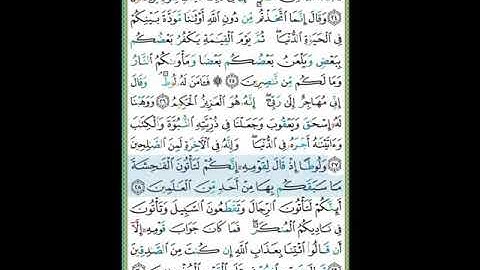 ﴿٢٤﴾ وَقَالَ إِنَّمَا اتَّخَذْتُم مِّن دُونِ اللَّهِ أَوْثَانًا مَّوَدَّةَ بَيْنِكُمْ
فِي الْحَيَاةِ الدُّنْيَا ثُمَّ يَوْمَ الْقِيَامَةِ يَكْفُرُ بَعْضُكُم
بِبَعْضٍ وَيَلْعَنُ بَعْضُكُم بَعْضًا وَمَأْوَاكُمُ النَّارُ
وَمَا لَكُم مِّن نَّاصِرِينَ ﴿٢٥﴾ فَآمَنَ لَهُ لُوطٌ وَقَالَ
إِنِّي مُهَاجِرٌ إِلَىٰ رَبِّي إِنَّهُ هُوَ الْعَزِيزُ الْحَكِيمُ ﴿٢٦﴾ وَوَهَبْنَا
لَهُ إِسْحَاقَ وَيَعْقُوبَ وَجَعَلْنَا فِي ذُرِّيَّتِهِ النُّبُوَّةَ وَالْكِتَابَ
وَآتَيْنَاهُ أَجْرَهُ فِي الدُّنْيَا وَإِنَّهُ فِي الْآخِرَةِ لَمِنَ الصَّالِحِينَ
﴿٢٧﴾ وَلُوطًا إِذْ قَالَ لِقَوْمِهِ إِنَّكُمْ لَتَأْتُونَ الْفَاحِشَةَ
مَا سَبَقَكُم بِهَا مِنْ أَحَدٍ مِّنَ الْعَالَمِينَ ﴿٢٨﴾
أَئِنَّكُمْ لَتَأْتُونَ الرِّجَالَ وَتَقْطَعُونَ السَّبِيلَ وَتَأْتُونَ
فِي نَادِيكُمُ الْمُنكَرَ فَمَا كَانَ جَوَابَ قَوْمِهِ إِلَّا
أَن قَالُوا ائْتِنَا بِعَذَابِ اللَّهِ إِن كُنتَ مِنَ الصَّادِقِينَ